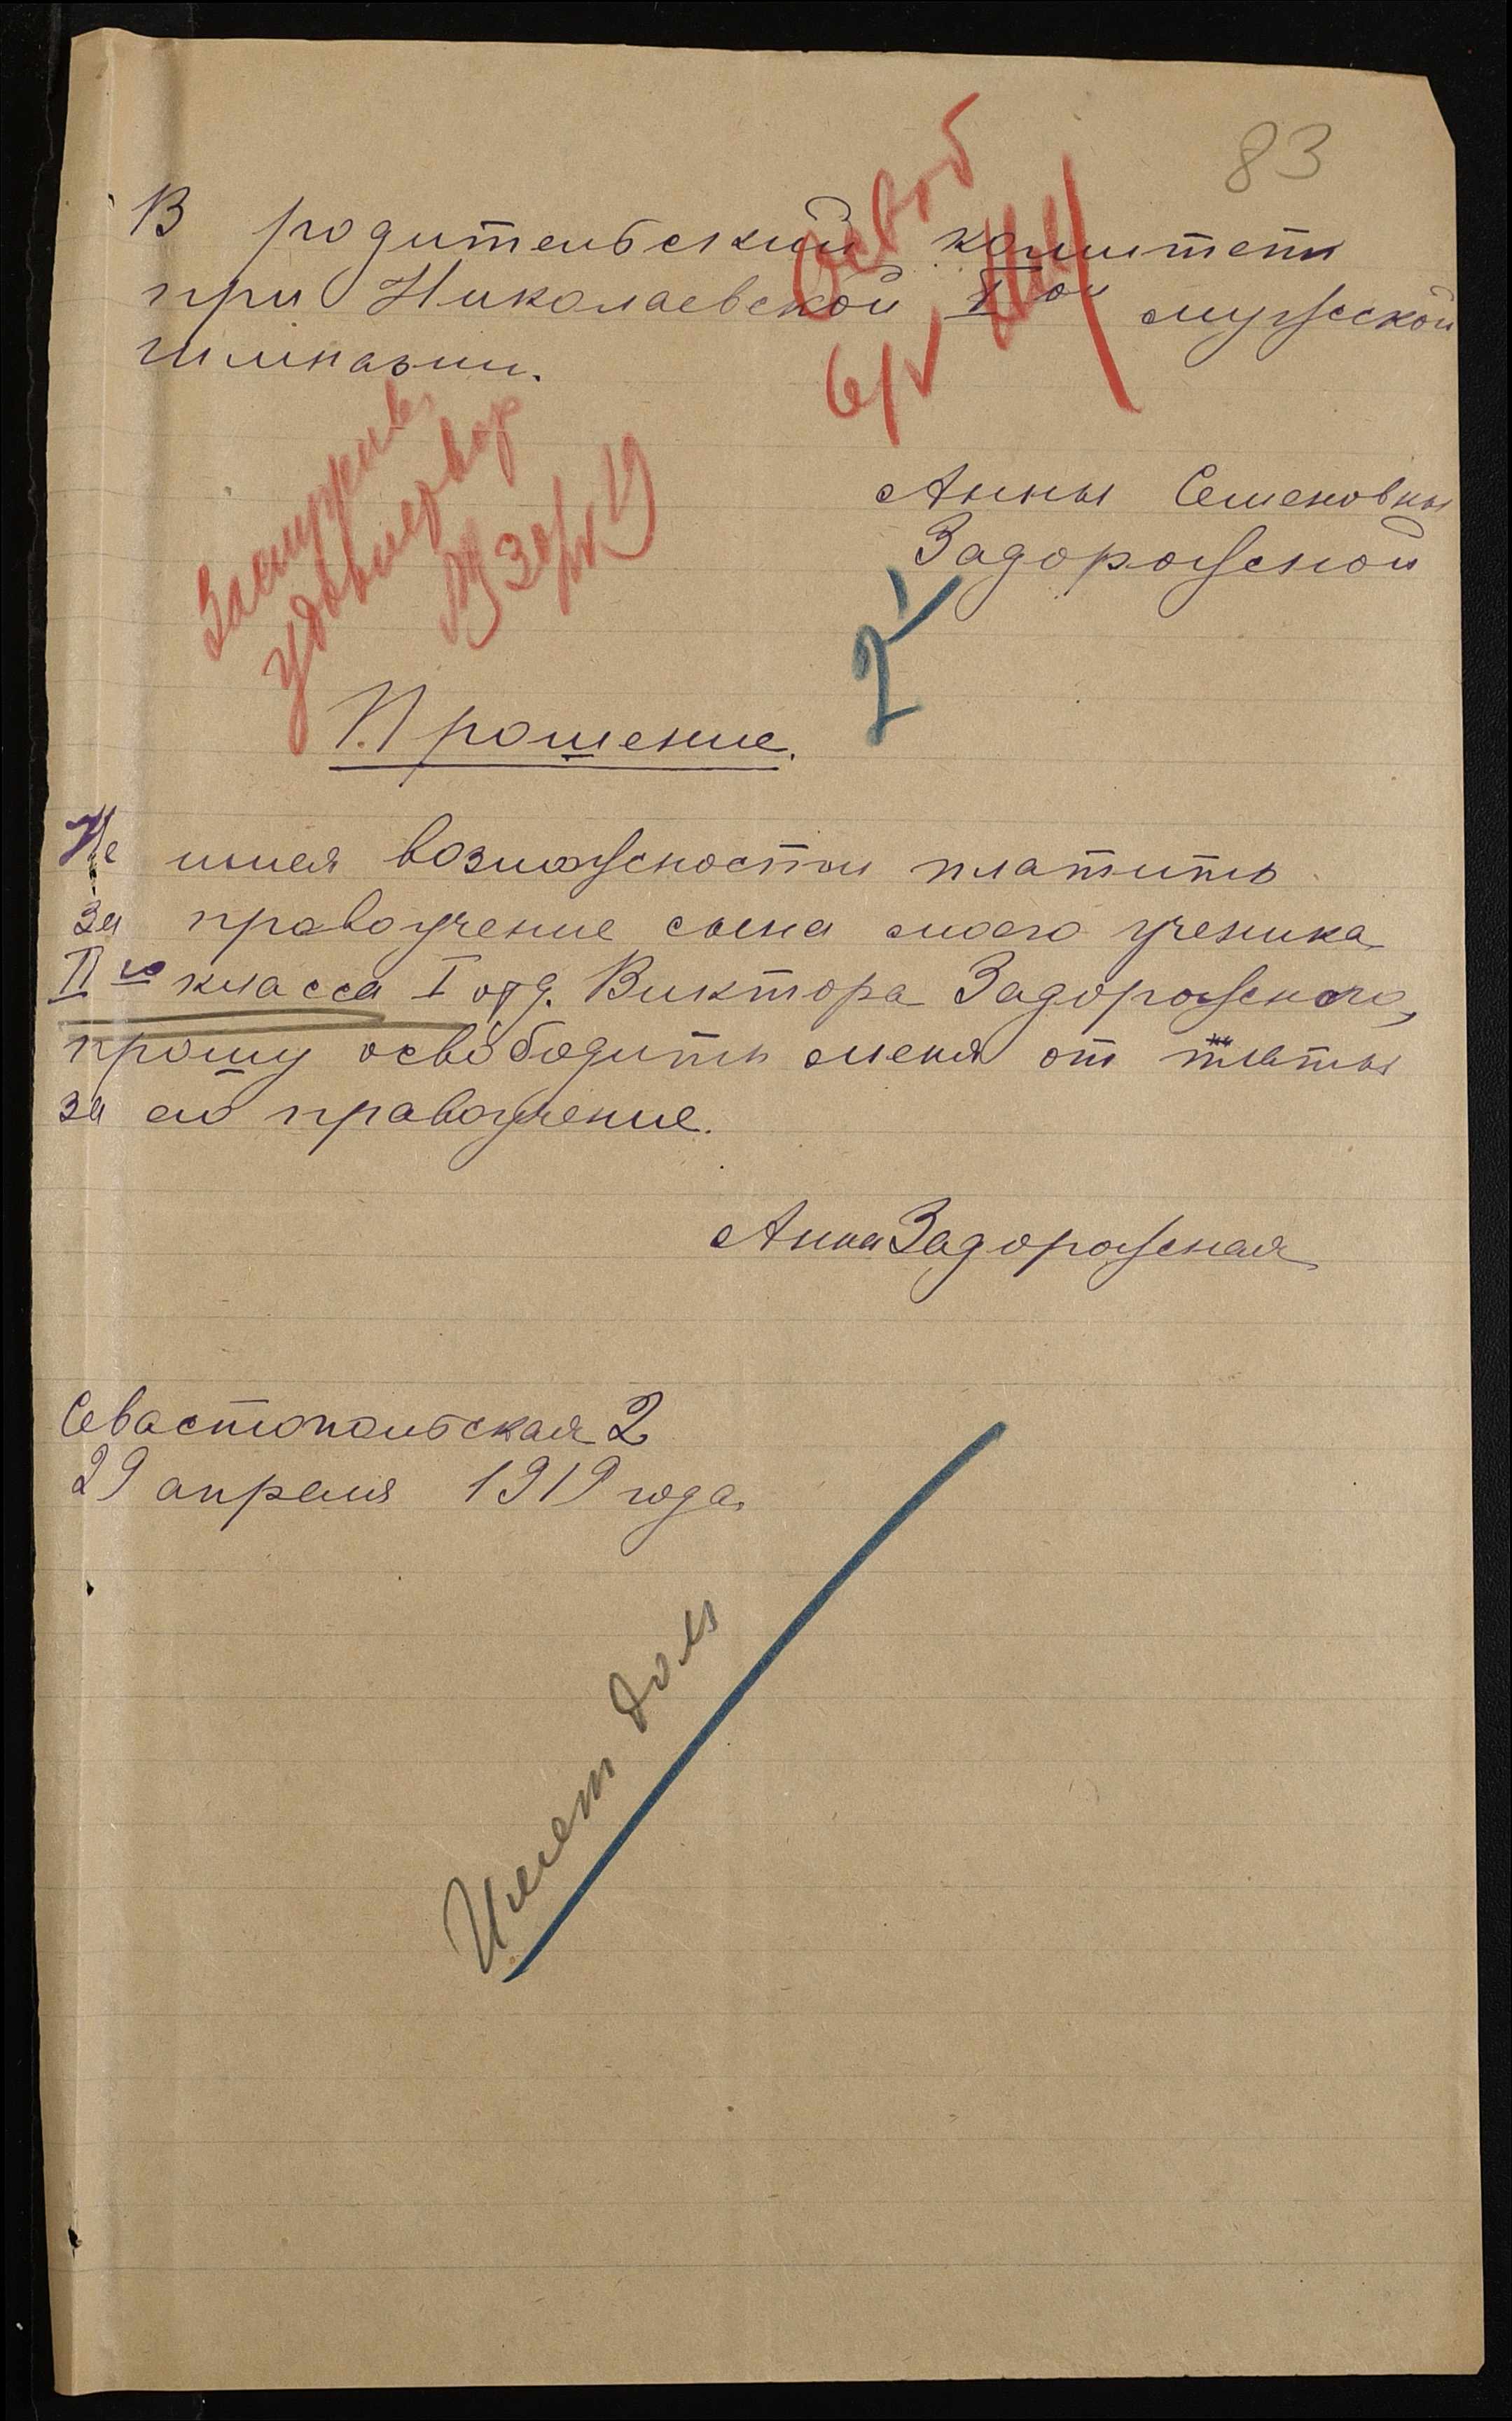 83
Освоб
6/V
В родительский комитет
при Николаевской I ой мужской
гимназии.
Заслужив.
удовлетвор
30/IV 19
Анны Семеновны
Задорожной
Прошение.
Не имея возможности платить
за правоучение сына моего ученика
II го класса I отд. Виктора Задорожного,
прошу освободить меня от платы
за его правоучение.
Анна Задорожная
Севастопольская 2
29 апреля 1919 года.
Имеет дом